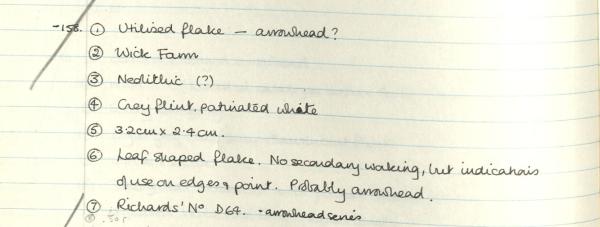 -156. ① Utilised flake - arrowhead?
② Wick Farm
③ Neolithic (?)
④ Grey flint, patinated white
⑤ 3.2cm x 2.4cm.
⑥ Leaf shaped flake. No secondary working, but indications
of use on edges & point. Probably arrowhead.
⑦ Richards' No D64. - arrowhead series
⑧